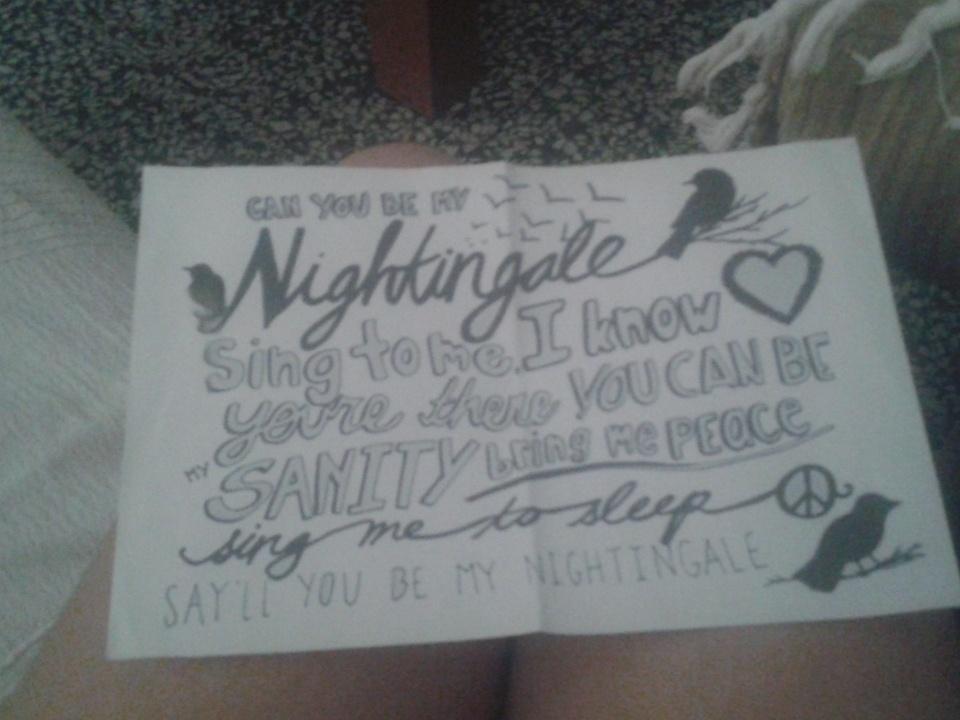 CAN YOU BE MY
Nightingale
Sing to me. I know
you're there YOU CAN BE
MY SANITY bring me PEACE
sing me to sleep
SAY'LL YOU BE MY NIGHTINGALE